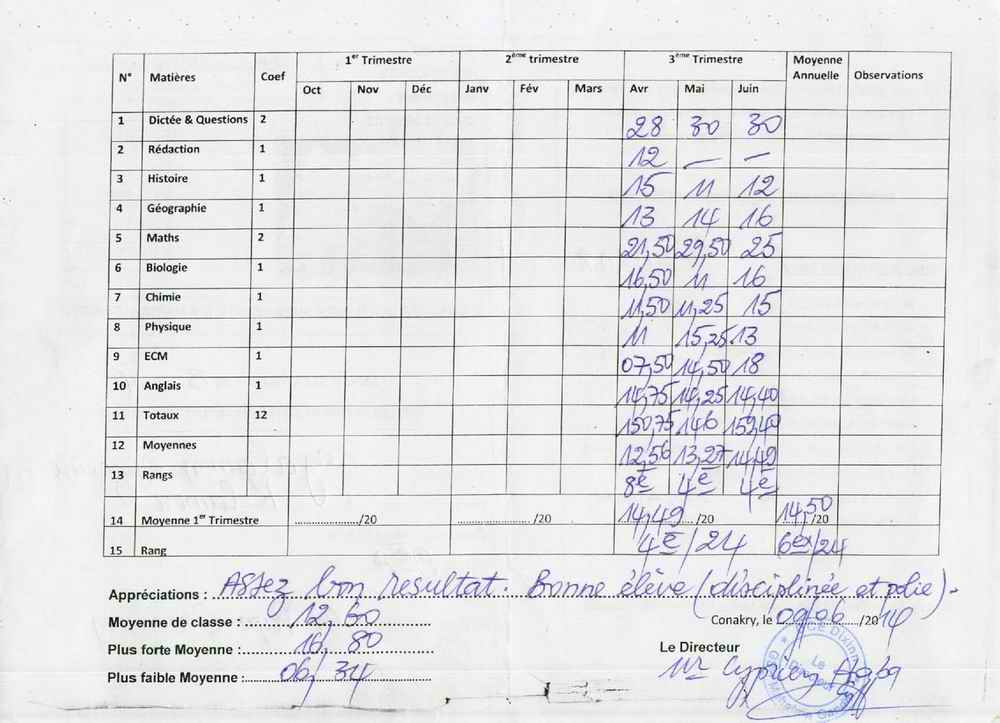 N° Matières Coef 1er Trimestre 2ème trimestre 3ème Trimestre Moyenne Annuelle Observations
Oct Nov Déc Janv Fév Mars Avr Mai Juin
1 Dictée & Questions 2 28 30 30
2 Rédaction 1 12 — —
3 Histoire 1 15 11 12
4 Géographie 1 13 14 16
5 Maths 2 21,50 29,50 25
6 Biologie 1 16,50 11 16
7 Chimie 1 11,50 11,25 15
8 Physique 1 11 15,25 13
9 ECM 1 07,50 14,50 18
10 Anglais 1 14,75 14,25 14,40
11 Totaux 12 150,75 146 159,40
12 Moyennes 12,56 13,27 14,49
13 Rangs 8e 4e 4e
14 Moyenne 1er Trimestre ......../20 ......../20 14,49 /20 14,50 /20
15 Rang 4e/24 6ex/24
Appréciations : Assez bon resultat. Bonne élève (disciplinée et polie).
Moyenne de classe : 12,60
Conakry, le 09/06/2014
Plus forte Moyenne : 16,80
Le Directeur
Plus faible Moyenne : 06,34
Mr Cyprien